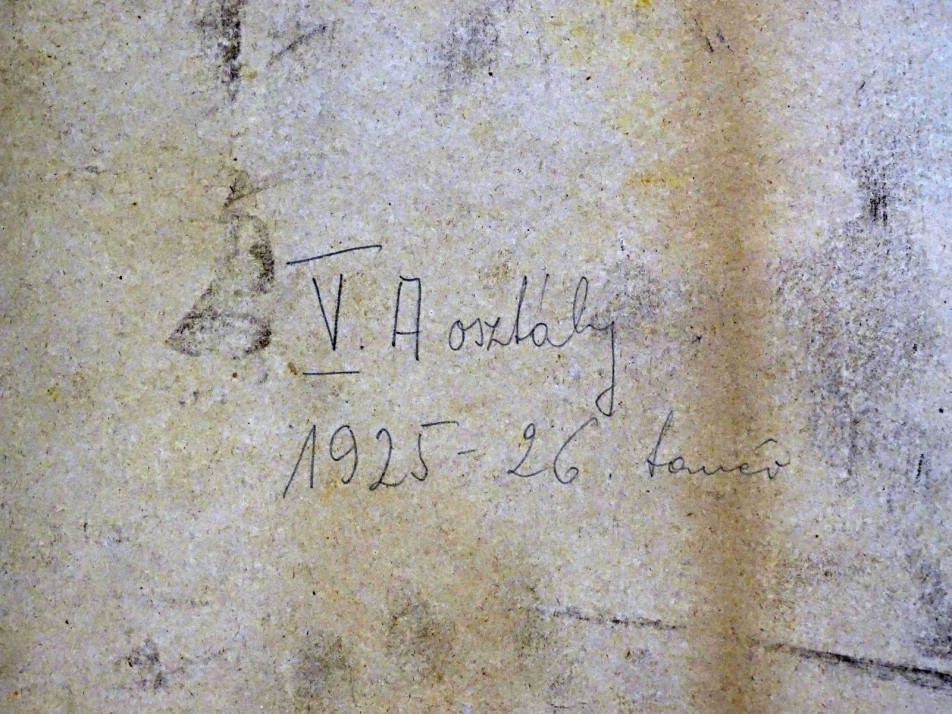 V. A osztály
1925-26. tanév